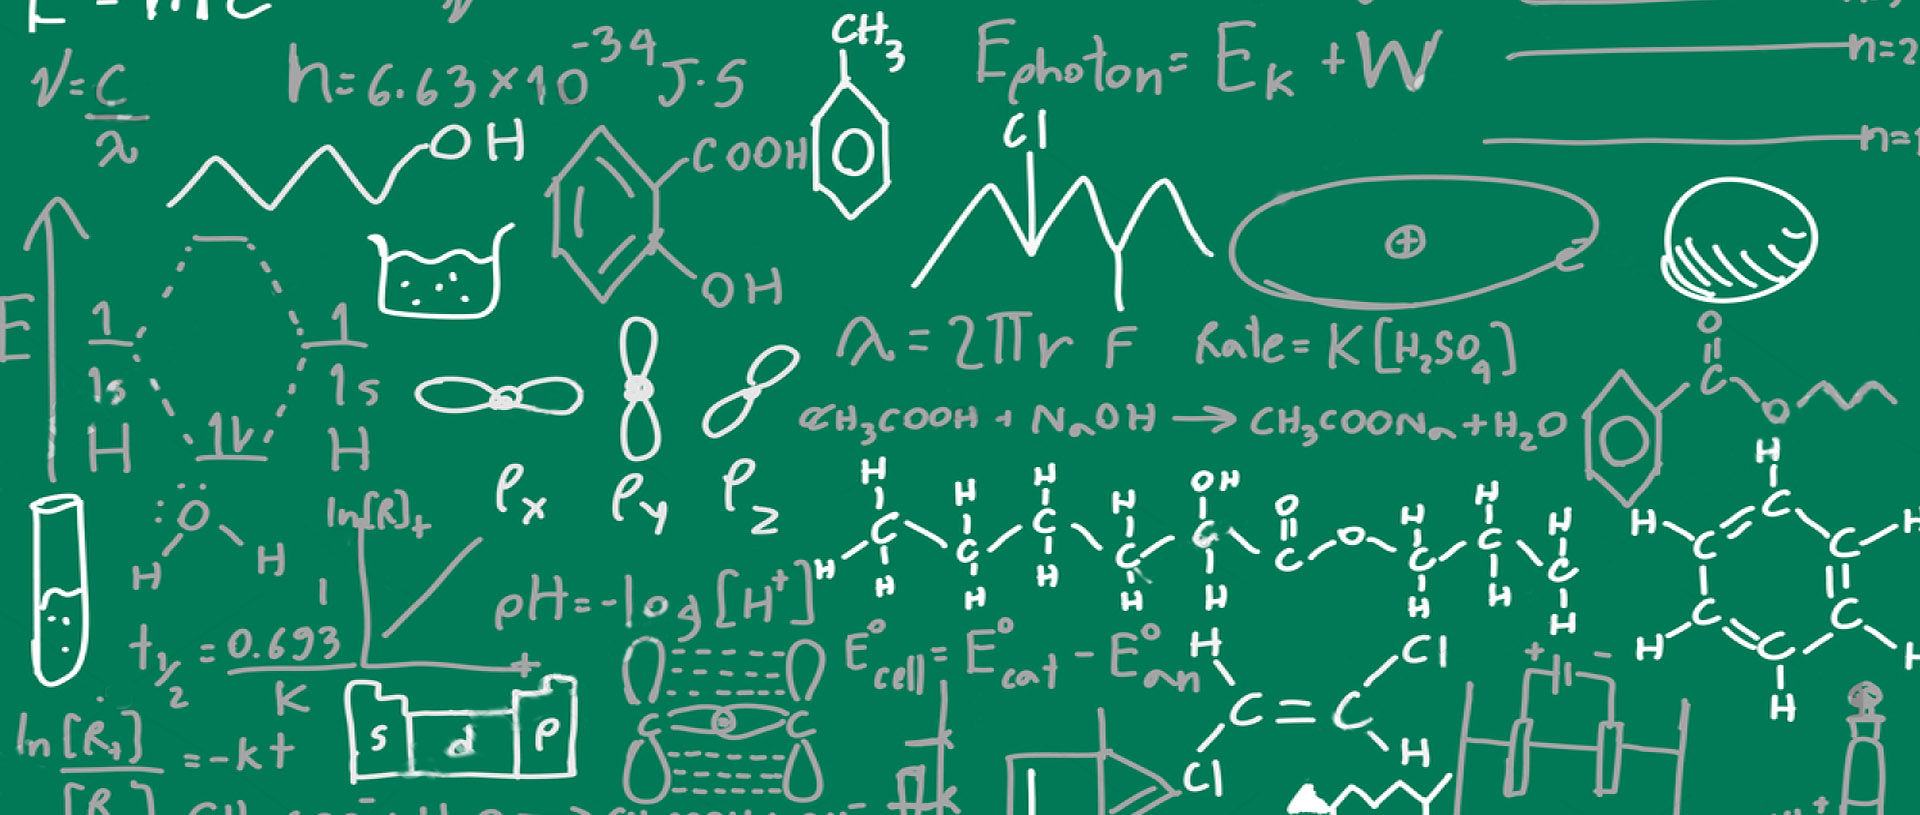 ν=C/λ
h=6.63×10⁻³⁴J·S
CH₃
Ephoton=E_K+W
n=2
OH
COOH
OH
Cl
n=1
E
1
1s
H
1
1s
H
1V
λ=2πr
F
Rate=K[H₂SO₄]
CH₃COOH+NaOH→CH₃COONa+H₂O
O
C
O
Px
Py
Pz
:Ö
H
H
ln[R]t
t
H H H H OH O H H H
H C C C C C C O C C C
H H H H H H H H
H
H C C H
C C
H C H
H
t½=0.693/K
pH=-log[H⁺]
E°cell=E°cat-E°an
H Cl
C=C
Cl H
+ -
s d p
C C
ln[Rt]/[R]=-kt